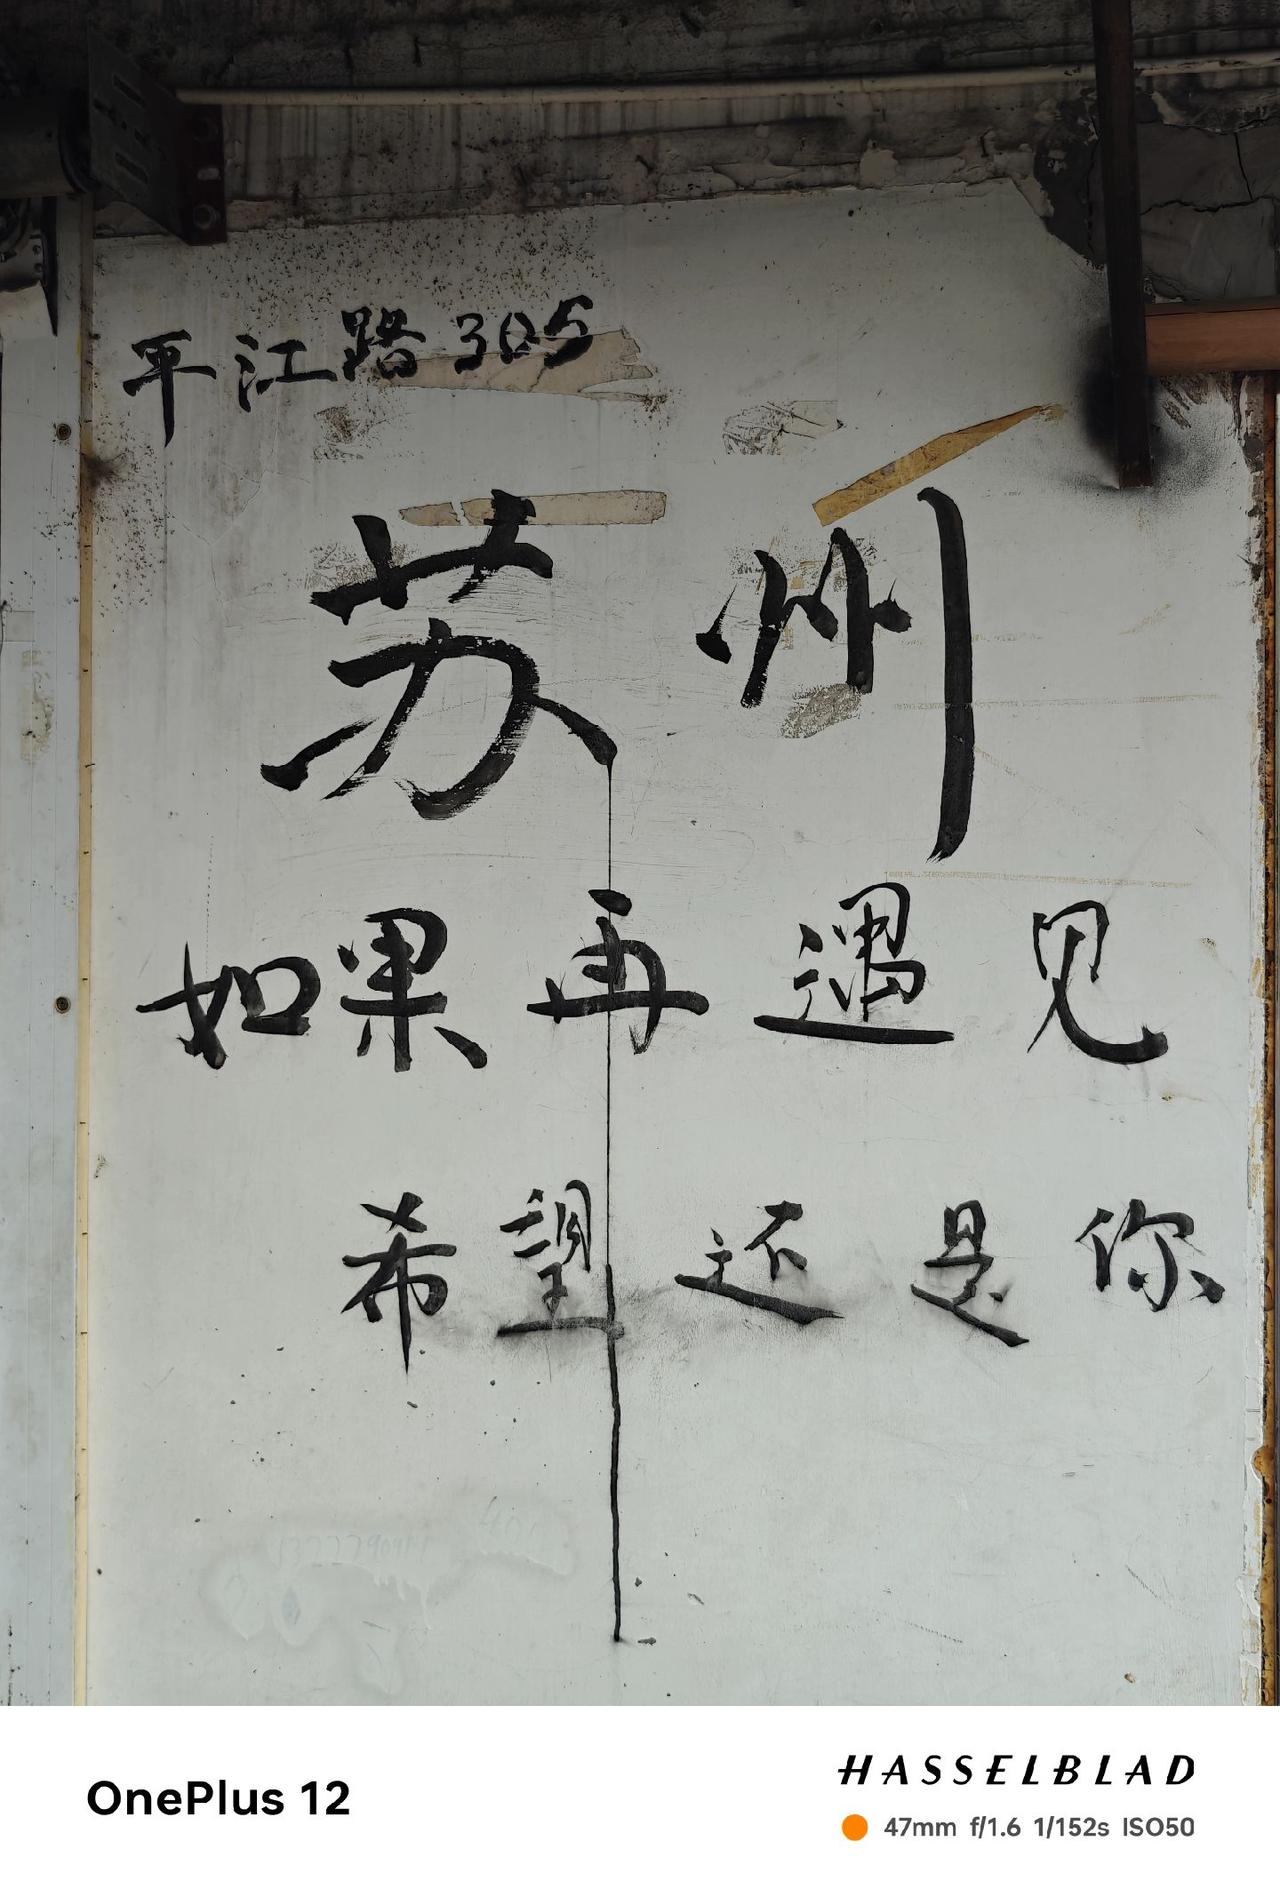 平江路305
苏州
如果再遇见
希望还是你
OnePlus 12
HASSELBLAD
47mm f/1.6 1/152s ISO50